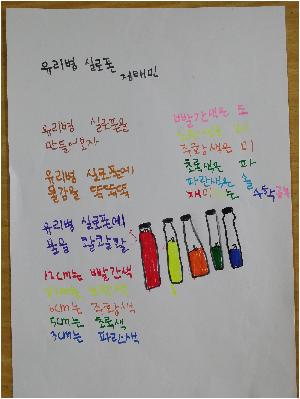 유리병 실로폰
정태민
유리병 실로폰을
만들어보자
유리병 실로폰에
물감을 똑똑똑
유리병 실로폰에
물을 콸콸콸
12cm는 빨간색
노란색
6cm는 주황색
5cm는 초록색
3cm는 파란색
빨간색은 도
노란색은
주황색은 미
초록색은 파
파란색은 솔
재미 는 수학